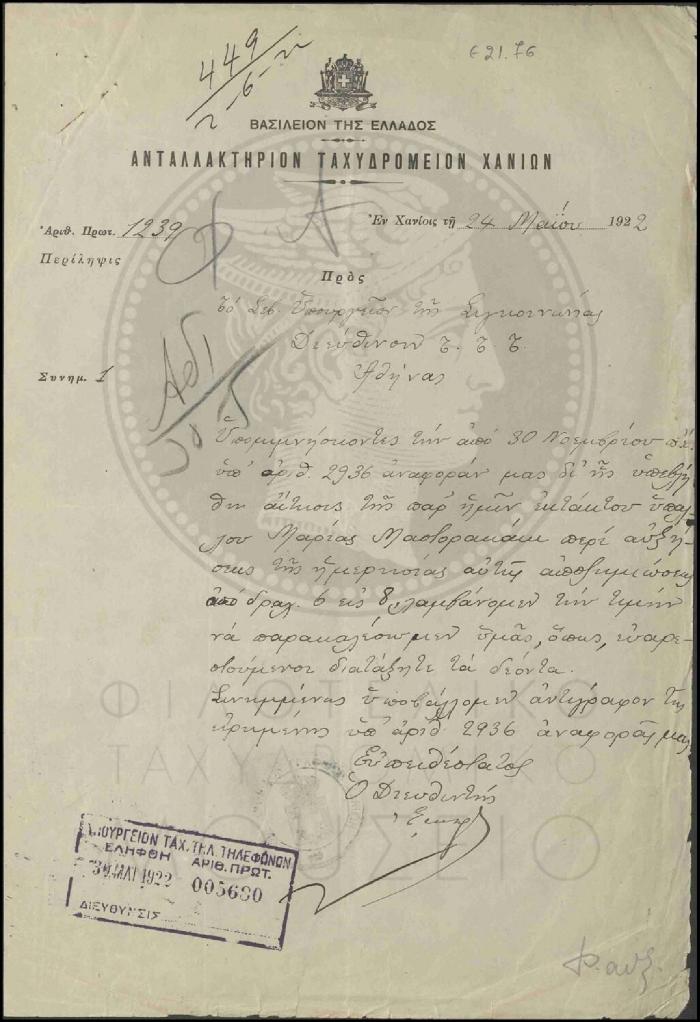 449
2-6-22
€21.76
ΒΑΣΙΛΕΙΟΝ ΤΗΣ ΕΛΛΑΔΟΣ
ΑΝΤΑΛΛΑΚΤΗΡΙΟΝ ΤΑΧΥΔΡΟΜΕΙΟΝ ΧΑΝΙΩΝ
Ἀριθ. Πρωτ. 1239
Ἐν Χανίοις τῇ 24 Μαΐου 1922
Περίληψις
Πρὸς
Τὸ Σεβ. Ὑπουργεῖον τῆς Συγκοινωνίας
Διεύθυνσιν Τ.Τ.Τ.
Ἀθήνας
Συνημ. 1
Ὑπομιμνήσκοντες τὴν ἀπὸ 30 Νοεμβρίου
ὑπ' ἀριθ. 2936 ἀναφοράν μας δι' ἧς ὑπεβλή
θη αἴτησις τῆς παρ' ἡμῖν ἐκτάκτου ὑπαλ
λήλου Μαρίας περὶ αὐξή
σεως τῆς ἡμερησίας αὐτῆς ἀποζημιώσεως
ἀπὸ δραχ. 6 εἰς 8, λαμβάνομεν τὴν τιμὴν
νὰ παρακαλέσωμεν ὑμᾶς, ὅπως, εὐαρε
στούμενοι διατάξητε τὰ δέοντα.
Συνημμένως ὑποβάλλομεν ἀντίγραφον τῆς
εἰρημένης ὑπ' ἀριθ. 2936 ἀναφορᾶς μας
Εὐπειθέστατος
Ὁ Διευθυντὴς
ΥΠΟΥΡΓΕΙΟΝ ΤΑΧ. ΤΗΛ. ΤΗΛΕΦΩΝΩΝ
ΕΛΗΦΘΗ ΑΡΙΘ. ΠΡΩΤ.
30 ΜΑΙ 1922 005680
ΔΙΕΥΘΥΝΣΙΣ
ΦΙΛΟΤΕΛΙΚΟ
ΤΑΧΥΔΡΟΜΙΚΟ
ΜΟΥΣΕΙΟ
Φ. αυξ.